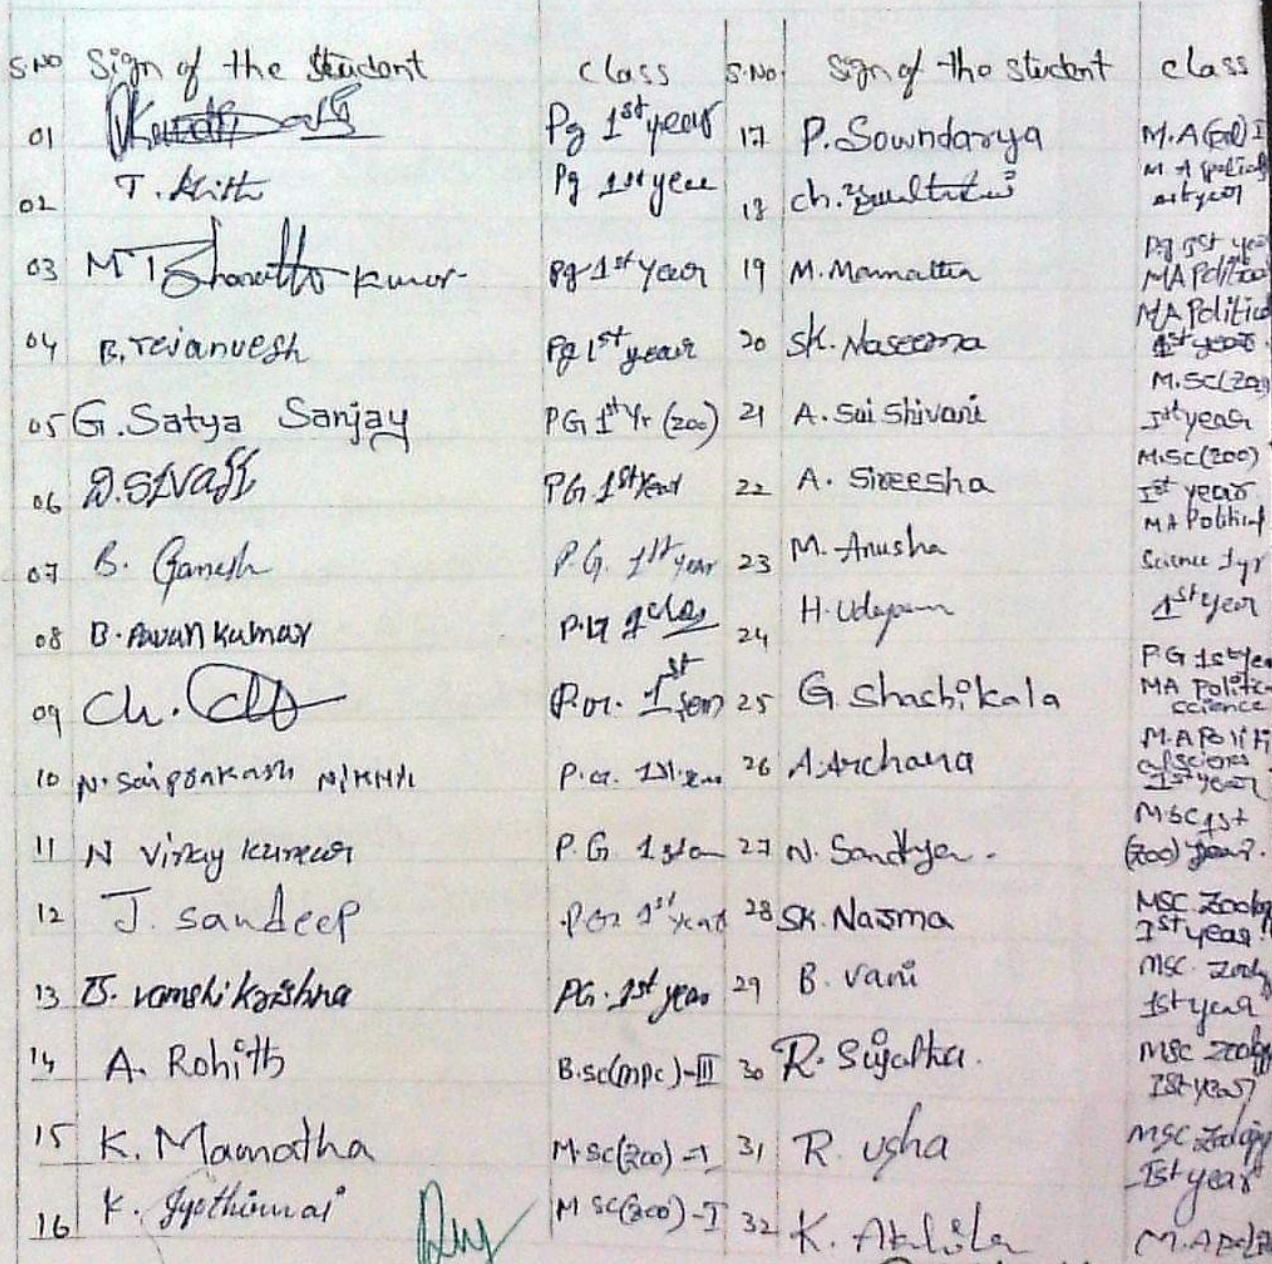 S.NO Sign of the Student class S.No. Sign of the student class
01 Pg 1st year 17 P. Soundarya M.A
02 T. Pg 1st year 18 ch. M A
03 M T Bharath Kumar Pg 1st year 19 M. Mamatha Pg 1st year MA Political
04 B. Tejanvesh Pg 1st year 20 SK. Naseema MA Political 1st year.
05 G. Satya Sanjay PG 1st Yr (zoo) 21 A. Sai Shivani M.SC(zoo) Ist year
06 D. SIVAJI PG 1st Year 22 A. Sireesha M.SC(zoo) Ist year
07 B. Ganesh P.G. 1st year 23 M. Anusha MA Political Science 1yr
08 B. Pavan Kumar P.G 24 H. 1st year
09 Ch. 1st sem 25 G. Shashikala P.G 1st year MA Politic science
10 N. Saiprakash NIKHIL P.G. 1st 26 A. Archana M.A Politi cal science 1st year
11 N Vinay Kumar P.G. 27 N. Sandhya. M.SC 1st (zoo) year.
12 J. Sandeep P.G 1st year 28 SK. Nasma MSC Zoology 1st year
13 B. Vamshi Krishna PG. 1st year 29 B. Vani MSC. Zoology 1st year
14 A. Rohith B.sc(mpc)-III 30 R. Sujatha. MSC Zoology Ist year
15 K. Mamatha M.SC(zoo)-I 31 R. Usha MSC Zoology Ist year
16 K. Jyothirmai M SC(zoo)-I 32 K. Akhila M.A